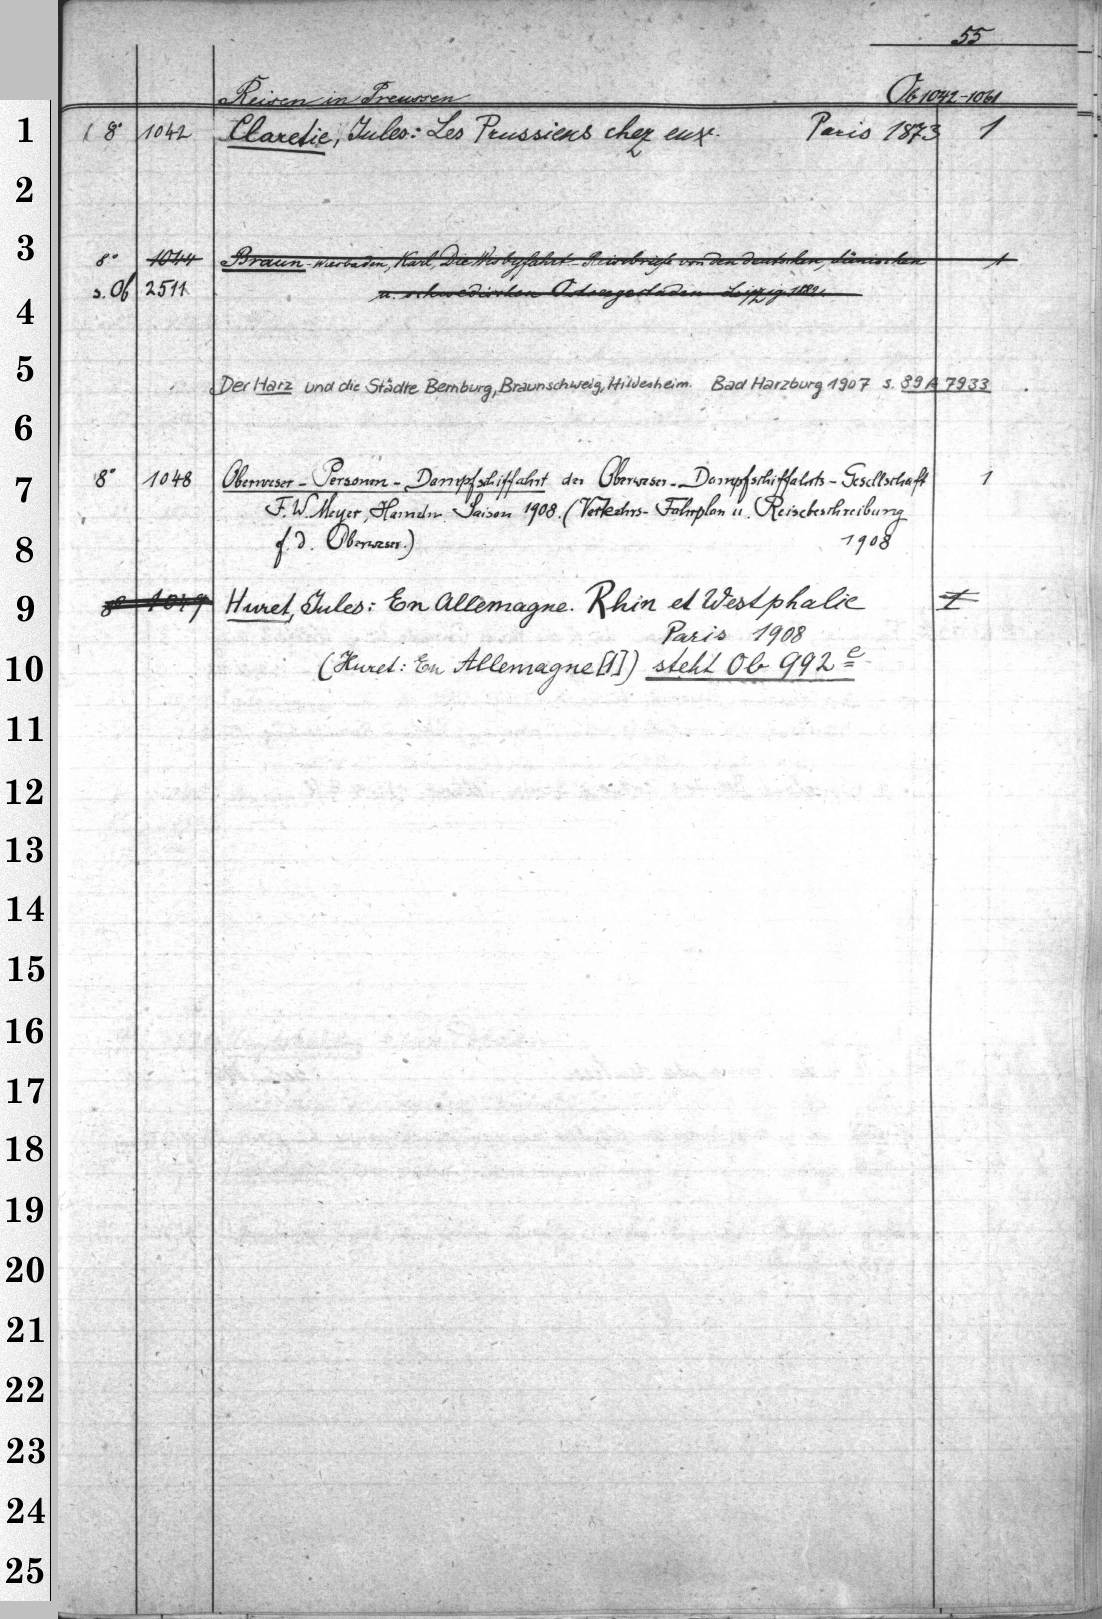 55
Reisen in Preussen Ob 1042-1061
1 8° 1042 Claretie, Jules: Les Prussiens chez eux. Paris 1873 1
2
3 8° 1044 Braun-Wiesbaden, Karl, Die Wisbyfahrt. Reisebriefe von den deutschen, dänischen 1
s. Ob 2511 u. schwedischen Ostseegestaden Leipzig 1882.
4
5 Der Harz und die Städte Bernburg, Braunschweig, Hildesheim. Bad Harzburg 1907 s. 39 A 7933
6
7 8° 1048 Oberweser-Personen-Dampfschiffahrt der Oberweser-Dampfschiffahrts-Gesellschaft 1
F. W. Meyer, Hameln. Saison 1908. (Verkehrs-Fahrplan u. Reisebeschreibung
8 f. d. Oberweser.) 1908
9 8° 1049 Huret, Jules: En Allemagne. Rhin et Westphalie 1
Paris 1908
10 (Huret: En Allemagne [1]) steht Ob 992 e
11
12
13
14
15
16
17
18
19
20
21
22
23
24
25